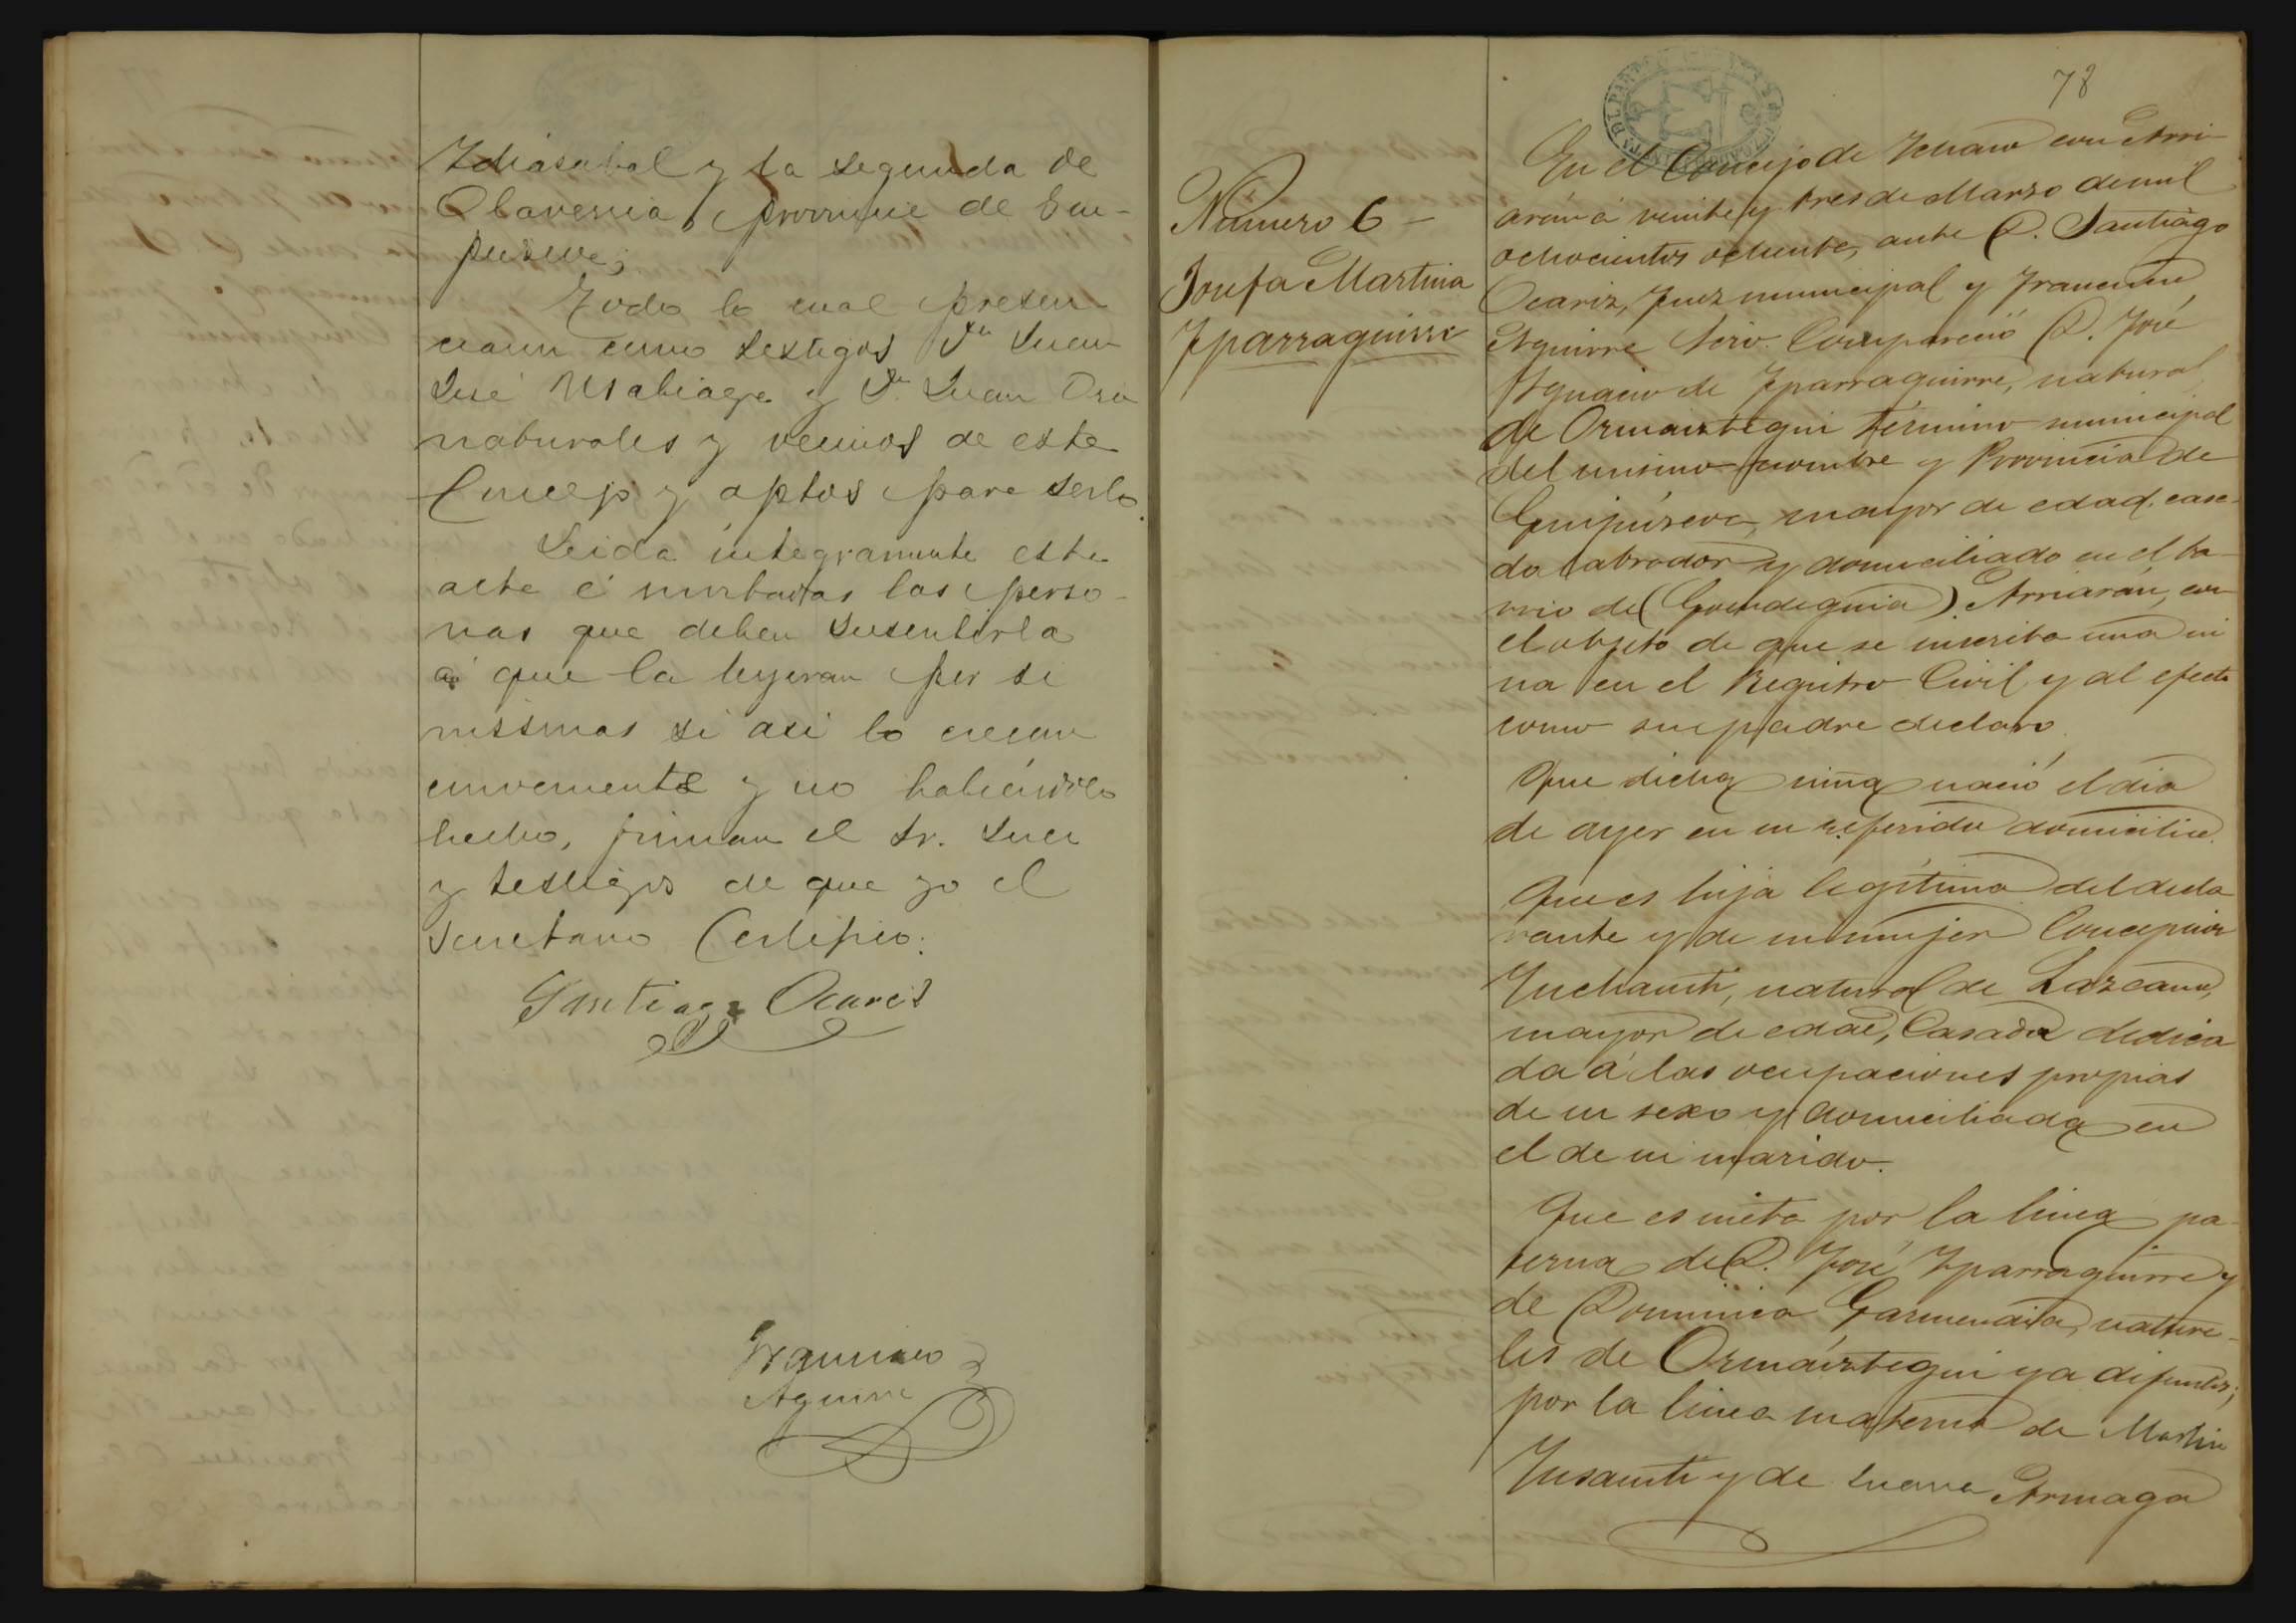 Idiasabal y la segunda de
Olaverria, provincia de Gui-
púzcoa;
Todo lo cual presen-
ciaron como testigos Dn Juan
José Usabiaga y Dn Juan Oria
naturales y vecinos de este
Concejo y aptos para serlo.
Leida integramente esta
acta é invitadas las perso-
nas que deben suscribirla
á que la leyeran por si
mismas si asi lo creian
conveniente y no habiéndolo
hecho, firman el Sr. Juez
y testigos de que yo el
Secretario Certifico:
Santiago Ocariz
Francisco
Aguirre
78
Número 6 –
Josefa Martina
Yparraguirre
En el Concejo de Ychaso con Arri-
arán á veinte y tres de Marzo de mil
ochocientos ochenta, ante D. Santiago
Ocariz, Juez municipal y Francisco
Aguirre Srio. Compareció D. José
Ygnacio de Yparraguirre, natural
de Ormaiztegui término municipal
del mismo nombre y Provincia de
Guipúzcoa, mayor de edad, casa-
do labrador y domiciliado en el ba-
rrio de (Goendeguia) Arriarán, con
el objeto de que se inscriba una ni
na en el Registro Civil y al efecto
como su padre declaro.
Que dicha niña nació el dia
de ayer en su referido domicilio.
Que es hija legítima del decla
rante y de su mujer Concepcion
Ynchausti, natural de Lazcano,
mayor de edad, Casada dedica
da á las ocupaciones propias
de su sexo y domiciliada en
el de su marido.
Que es nieta por la linea pa-
terna de D. José Yparraguirre y
de Dominica Garmendia, natura-
les de Ormáiztegui ya difuntos;
por la linea materna de Martin
Ynsausti y de Juana Armaga